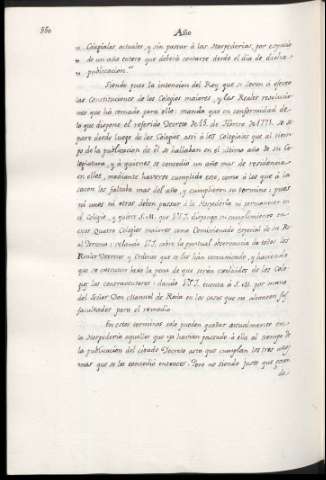 550 Año
„ Colegiales actuales, y sin pasar á las Hospederias, por espacio
„ de un año entero que deberá contarse desde el dia de dicha
„ publicacion."
Siendo pues la intencion del Rey que se lleven á efecto
las Constituciones de los Colegios maiores, y las Reales resolucio-
nes que há tomado para ello: manda que en conformidad de
lo que dispone el referido Decreto de 15. de Febrero de 1771. se se-
pare desde luego de los Colegios, asi à los Colegiales que al tiem-
po de la publicacion de él se hallaban en el ultimo año de su Co-
legiatura, y á quienes se concedió un año mas de residencia
en ellos, mediante haverse cumplido este, como á los que á la
sazon les faltaba mas del año, y cumplieron su termino; pues
ni unos ni otros deben pasar á la Hospederia ni permanecer en
el Colegio, y quiere S. M. que V.S.I. disponga su cumplimiento en
esos Quatro Colegios maiores como Comisionado especial de su Re-
al Persona: celando V.S.I. sobre la puntual observancia de todos los
Reales Decretos y Ordenes que se le han comunicado, y haciendo
que se executen bajo la pena de que serán excluidos de los Cole-
gios los contraventores: dando V.S.I. cuenta á S. M. por mano
del Señor Don Manuel de Roda en los casos que no alcancen sus
facultades para el remedio.
En estos terminos solo pueden quedar actualmente en
la Hospederia aquellos que ya havian pasado á ella al tiempo de
la publicacion del citado Decreto hasta que cumplan los tres años
mas que se les concedió entonces. Pero no siendo justo que